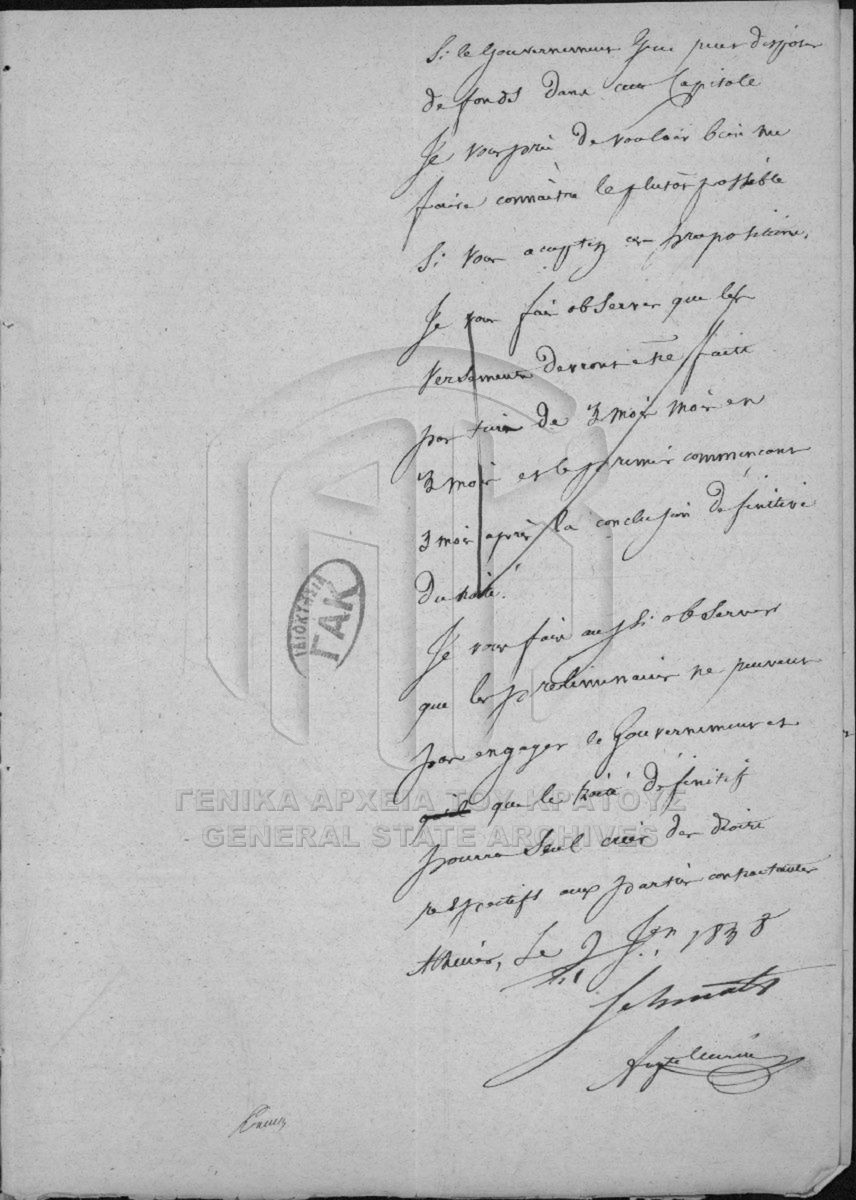 Si le Gouvernement Grec peut disposer
de fonds dans cette Capitale
Je vous prie de vouloir bien me
faire connaître le plutôt possible
Si vous acceptez ces propositions.
Je vous fais observer que les
versements devront être faits
par tiers de 3 mois mois en
3 mois et le premier commençant
3 mois après la conclusion définitive
du traité.
Je vous fais aussi observer
que les préliminaires ne peuvent
pas engager le Gouvernement et
que le traité définitif
pourra seul créer des droits
respectifs aux parties contractantes
Athènes, le 9 Jen 1838
Schmaltz
ΙΔΙΟΚΤΗΣΙΑ
ΓΑΚ
ΓΕΝΙΚΑ ΑΡΧΕΙΑ ΤΟΥ ΚΡΑΤΟΥΣ
GENERAL STATE ARCHIVES